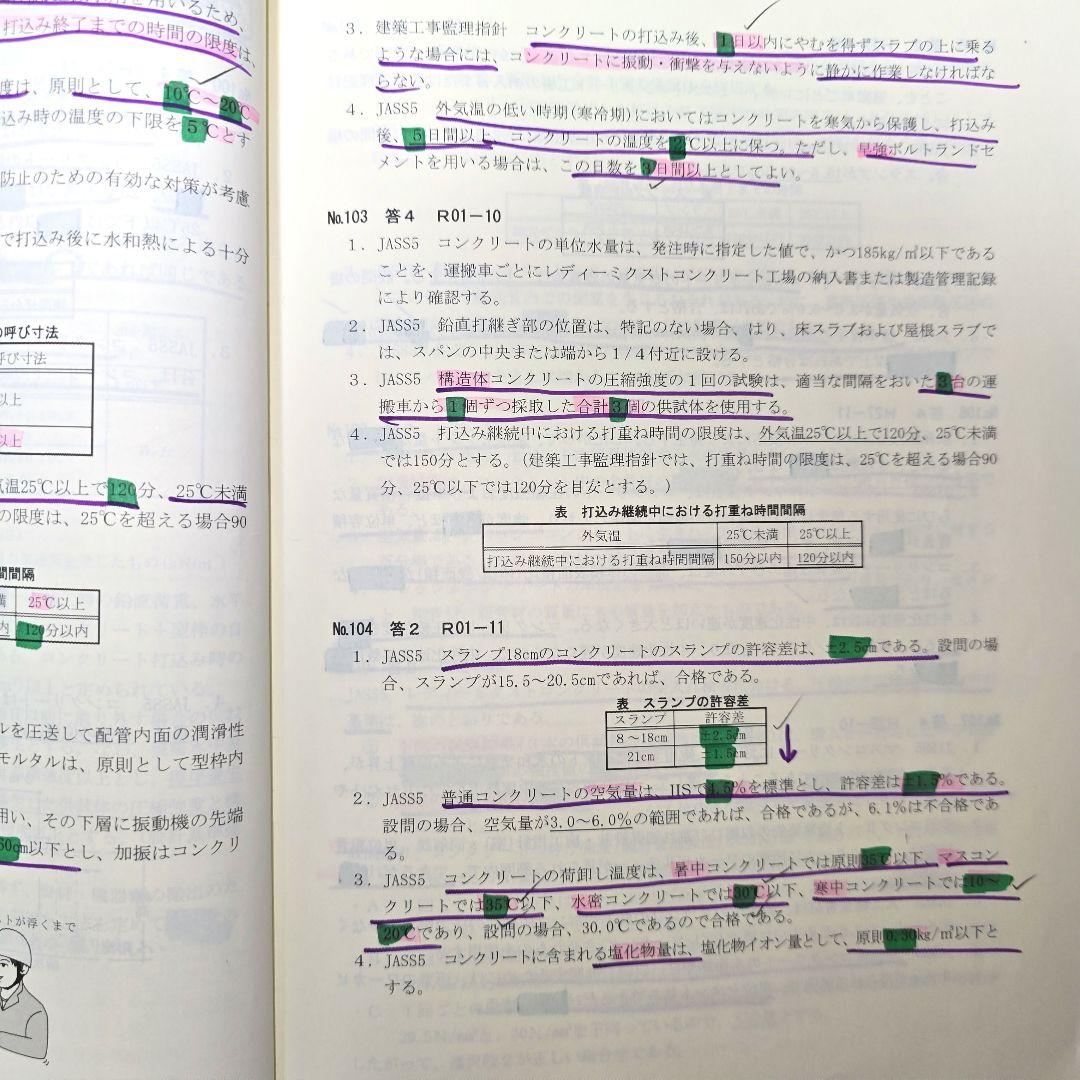 用いるため、
打込み終了までの時間の限度は、
度は、原則として、10℃～20℃
込み時の温度の下限を5℃とす
防止のための有効な対策が考慮
で打込み後に水和熱による十分
の呼び寸法
呼び寸法
以上
以上
気温25℃以上で120分、25℃未満
の限度は、25℃を超える場合90
間間隔
満 25℃以上
内 120分以内
ルを圧送して配管内面の潤滑性
モルタルは、原則として型枠内
用い、その下層に振動機の先端
60cm以下とし、加振はコンクリ
ントが浮くまで
3．建築工事監理指針 コンクリートの打込み後、1日以内にやむを得ずスラブの上に乗る
ような場合には、コンクリートに振動・衝撃を与えないように静かに作業しなければな
らない。
4．JASS5 外気温の低い時期(寒冷期)においてはコンクリートを寒気から保護し、打込み
後、5日間以上 コンクリートの温度を2℃以上に保つ。ただし、早強ポルトランドセ
メントを用いる場合は、この日数を3日間以上としてよい。
№103 答4 R01－10
1．JASS5 コンクリートの単位水量は、発注時に指定した値で、かつ185kg/㎥以下である
ことを、運搬車ごとにレディーミクストコンクリート工場の納入書または製造管理記録
により確認する。
2．JASS5 鉛直打継ぎ部の位置は、特記のない場合、はり、床スラブおよび屋根スラブで
は、スパンの中央または端から1/4付近に設ける。
3．JASS5 構造体コンクリートの圧縮強度の1回の試験は、適当な間隔をおいた3台の運
搬車から1個ずつ採取した合計3個の供試体を使用する。
4．JASS5 打込み継続中における打重ね時間の限度は、外気温25℃以上で120分、25℃未満
では150分とする。（建築工事監理指針では、打重ね時間の限度は、25℃を超える場合90
分、25℃以下では120分を目安とする。）
表 打込み継続中における打重ね時間間隔
外気温 25℃未満 25℃以上
打込み継続中における打重ね時間間隔 150分以内 120分以内
№104 答2 R01－11
1．JASS5 スランプ18cmのコンクリートのスランプの許容差は、±2.5cmである。設問の場
合、スランプが15.5～20.5cmであれば、合格である。
表 スランプの許容差
スランプ 許容差
8～18cm ±2.5cm
21cm ±1.5cm
2．JASS5 普通コンクリートの空気量は、JISで4.5%を標準とし、許容差は±1.5%である。
設問の場合、空気量が3.0～6.0%の範囲であれば、合格であるが、6.1%は不合格であ
る。
3．JASS5 コンクリートの荷卸し温度は、暑中コンクリートでは原則35℃以下、マスコン
クリートでは35℃以下、水密コンクリートでは30℃以下、寒中コンクリートでは10～
20℃であり、設問の場合、30.0℃であるので合格である。
4．JASS5 コンクリートに含まれる塩化物量は、塩化物イオン量として、原則0.30kg/㎥以下と
する。